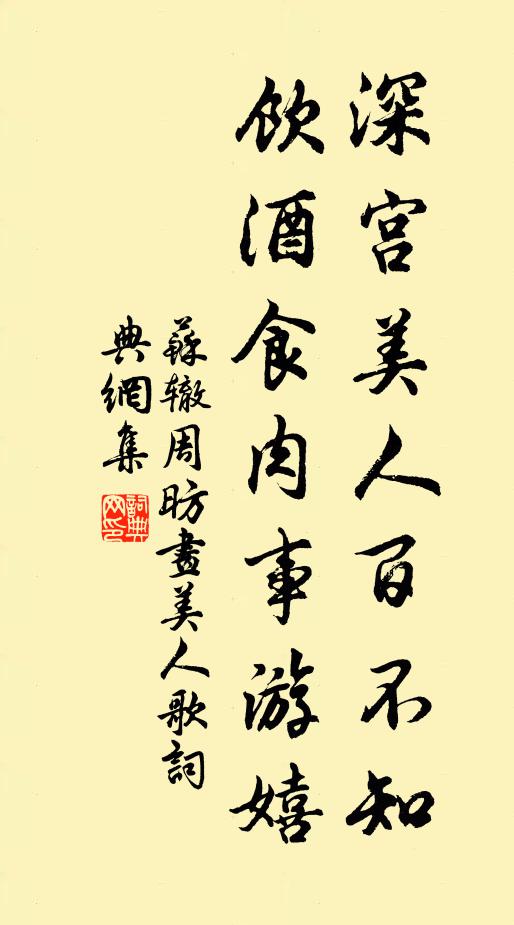 深宮美人百不知
飲酒食肉事游嬉
蘇辙周昉畫美人歌詞
典網集
詞典
网印